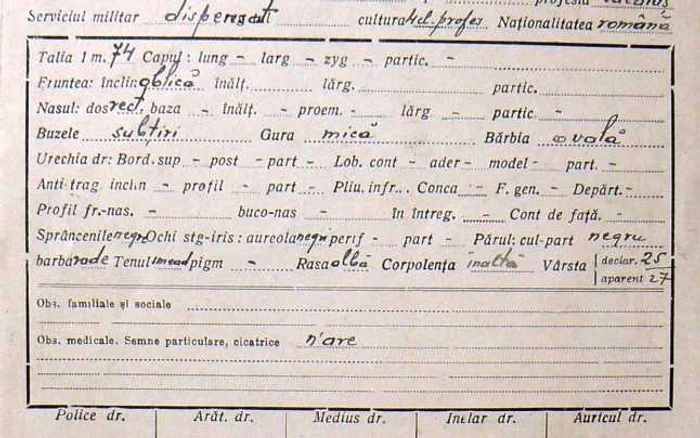 profesia
Serviciul militar dispensat cultura 4 cl. profes Naționalitatea română
Talia 1 m. 74 Capul: lung - larg - zyg - partic. -
Fruntea: înclin. oblică înălț. lărg. partic.
Nasul: dos rect. baza - înălț. - proem. - lărg - partic -
Buzele subțiri Gura mică Bărbia ovală
Urechia dr: Bord. sup - post - part - Lob. cont - ader - model - part. -
Anti-trag. inclin - profil - part - Pliu. infr.. Conca - F. gen. - Depărt. -
Profil fr.-nas. - buco-nas - în întreg. - Cont de față. -
Sprâncenile negre Ochi stg-iris: aureola negri perif - part - Părul: cul-part negru
barbă rade Tenul smead pigm - Rasa albă Corpolența înaltă Vârsta declar. 25
aparent 27
Obs. familiale și sociale
Obs. medicale. Semne particulare, cicatrice n'are
Police dr. Arăt. dr. Medius dr. Inelar dr. Auricul dr.